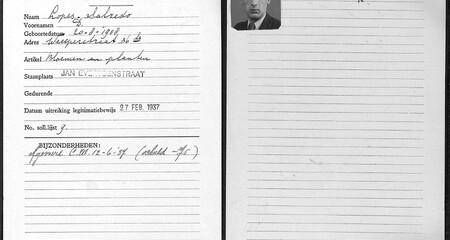 Naam Lopes-Salredo
Voornamen D.
Geboortedatum 20-8-1908
Adres Weesperstraat 36
Artikel Bloemen en planten
Stamplaats JAN EVERTSENSTRAAT
Gedurende
Datum uitreiking legitimatiebewijs 27 FEB. 1937
No. soll.lijst 9.
BIJZONDERHEDEN:
afgevoerd C.M. 12-6-'37 (schuld